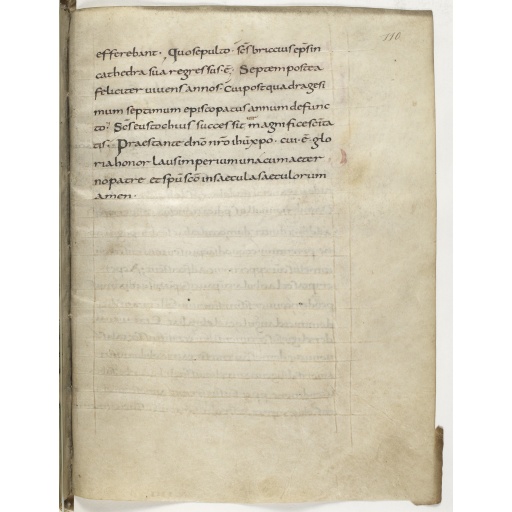 110
efferebant · Quo sepulto · scs briccius eps in
cathedra sua regressus · ē · Septem postea
feliciter vivens annos · Cui post quadragesi
mum septimum episcopatus annum defunc
to · Scs eustochius successit magnifice scita
tis · Praestante dno nro ihu xpo · cui · ē · glo
ria honor laus imperium una cum aeter
no patre et spu sco in saecula saeculorum
amen ·